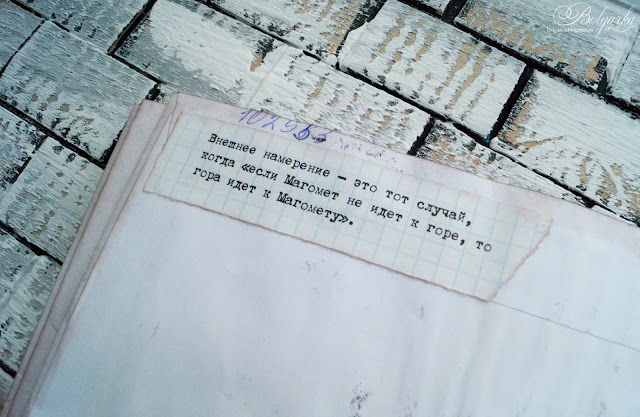 Bolgarka
Внешнее намерение – это тот случай,
когда «если Магомет не идет к горе, то
гора идет к Магомету».